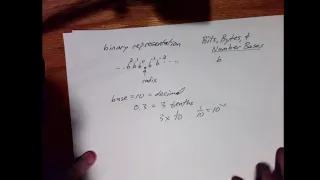 binary representation
Bits, Bytes, &
Number Bases
b
radix
base = 10 = decimal
0.3 = 3 tenths
3 × 1/10 1/10 = 10⁻¹